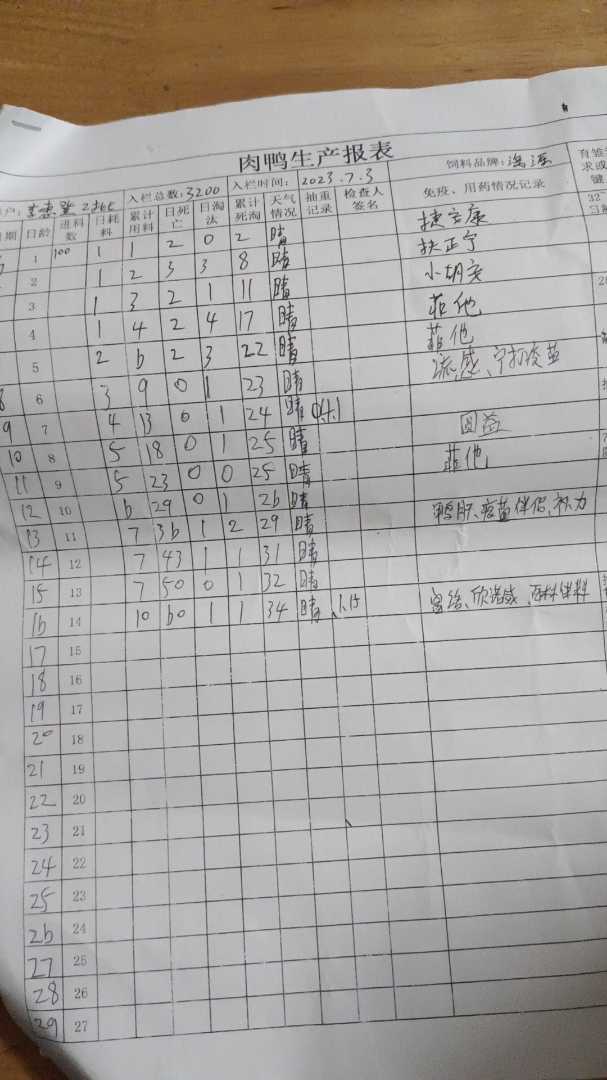 肉鸭生产报表
户: 2批 入栏总数:3200 入栏时间: 2023.7.3 饲料品牌: 育雏
期 日龄 进料数 日耗料 累计用料 日死亡 日淘汰 累计死淘 天气情况 抽重记录 检查人签名 免疫、用药情况记录 求或 键
1 100 1 1 2 0 2 晴 捷安康 32
2 1 2 3 3 8 晴 扶正宁
3 1 3 2 1 11 晴 小胡安
4 1 4 2 4 17 晴 菲他
5 2 6 2 3 22 晴 菲他
8 6 3 9 0 1 23 晴 流感、疫苗
9 7 4 13 0 1 24 晴 0.4.1
10 8 5 18 0 1 25 晴 固益
11 9 5 23 0 0 25 晴 菲他
12 10 6 29 0 1 26 晴
13 11 7 36 1 2 29 晴 鸭肝、疫苗伴侣、补力
14 12 7 43 1 1 31 晴
15 13 7 50 0 1 32 晴
16 14 10 60 1 1 34 晴 1.15
17 15
18 16
19 17
20 18
21 19
22 20
23 21
24 22
25 23
26 24
27 25
28 26
29 27